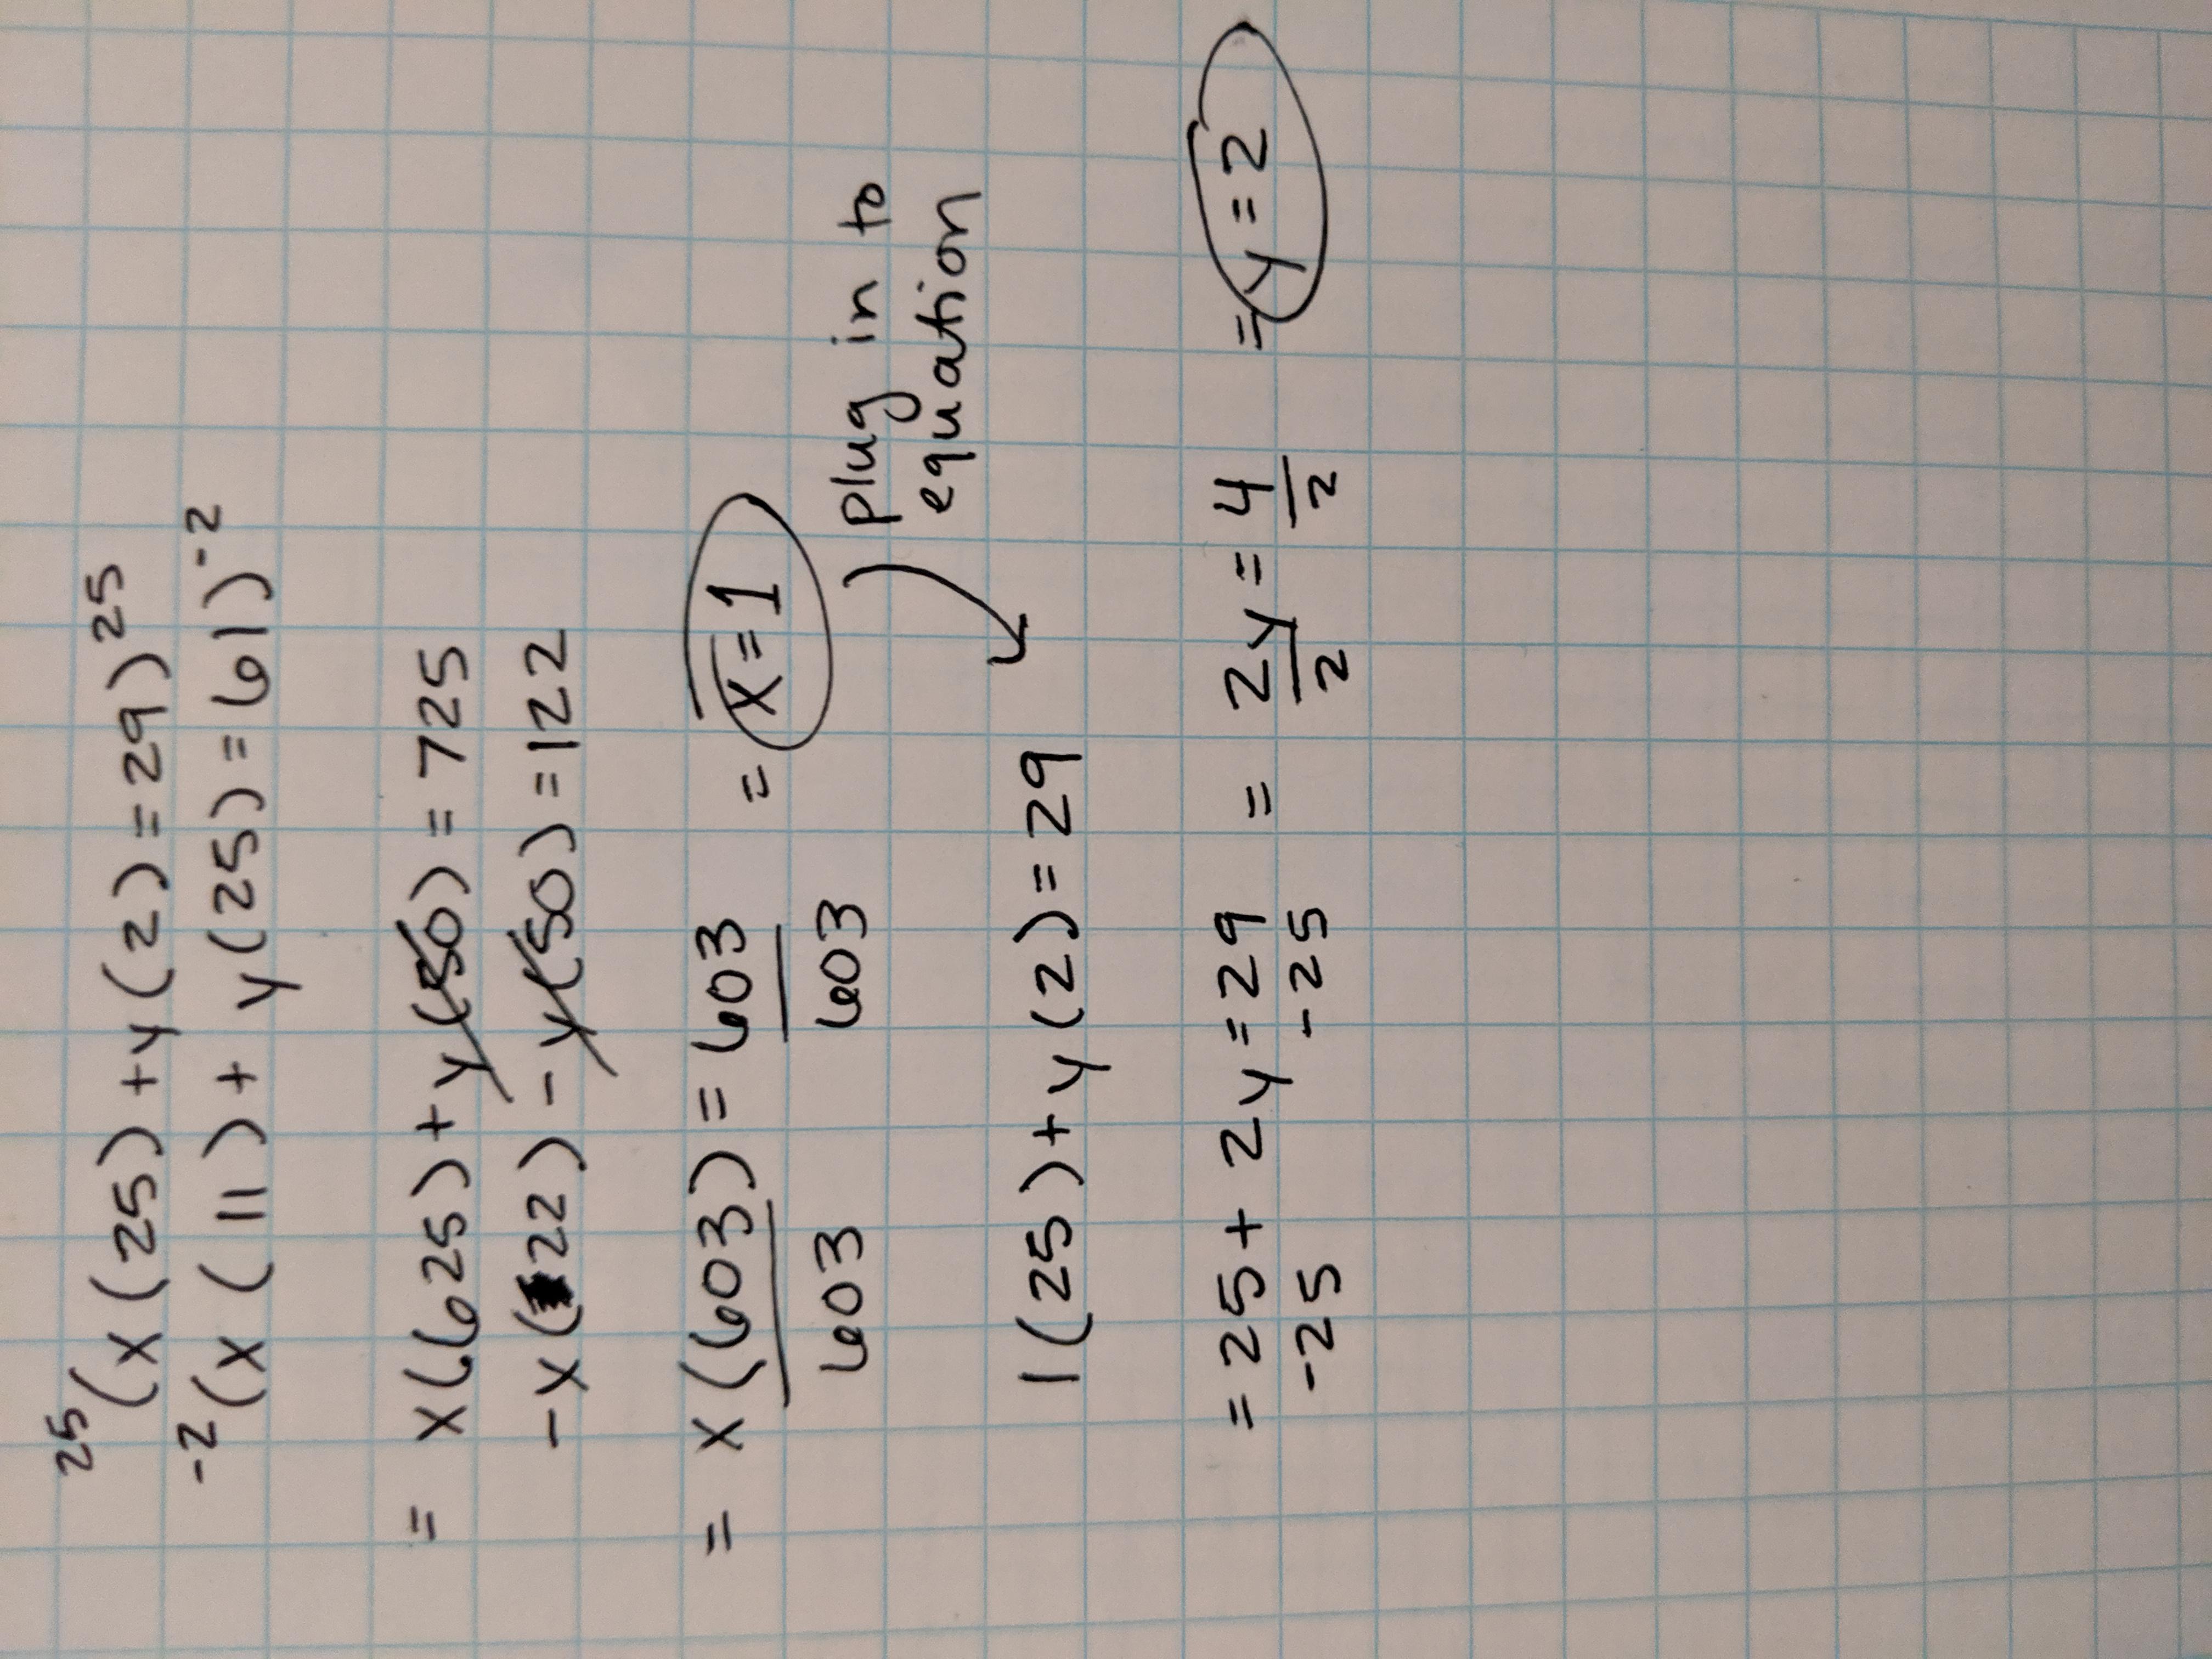 25(x(25)+y(2)=29)25
-2(x(11)+y(25)=61)-2
= x(625)+y(50)=725
-x(22)-y(50)=122
= x(603)=603 = x=1
603 603
plug in to
equation
1(25)+y(2)=29
=25+2y=29 = 2y=4 = y=2
-25 -25 2 2